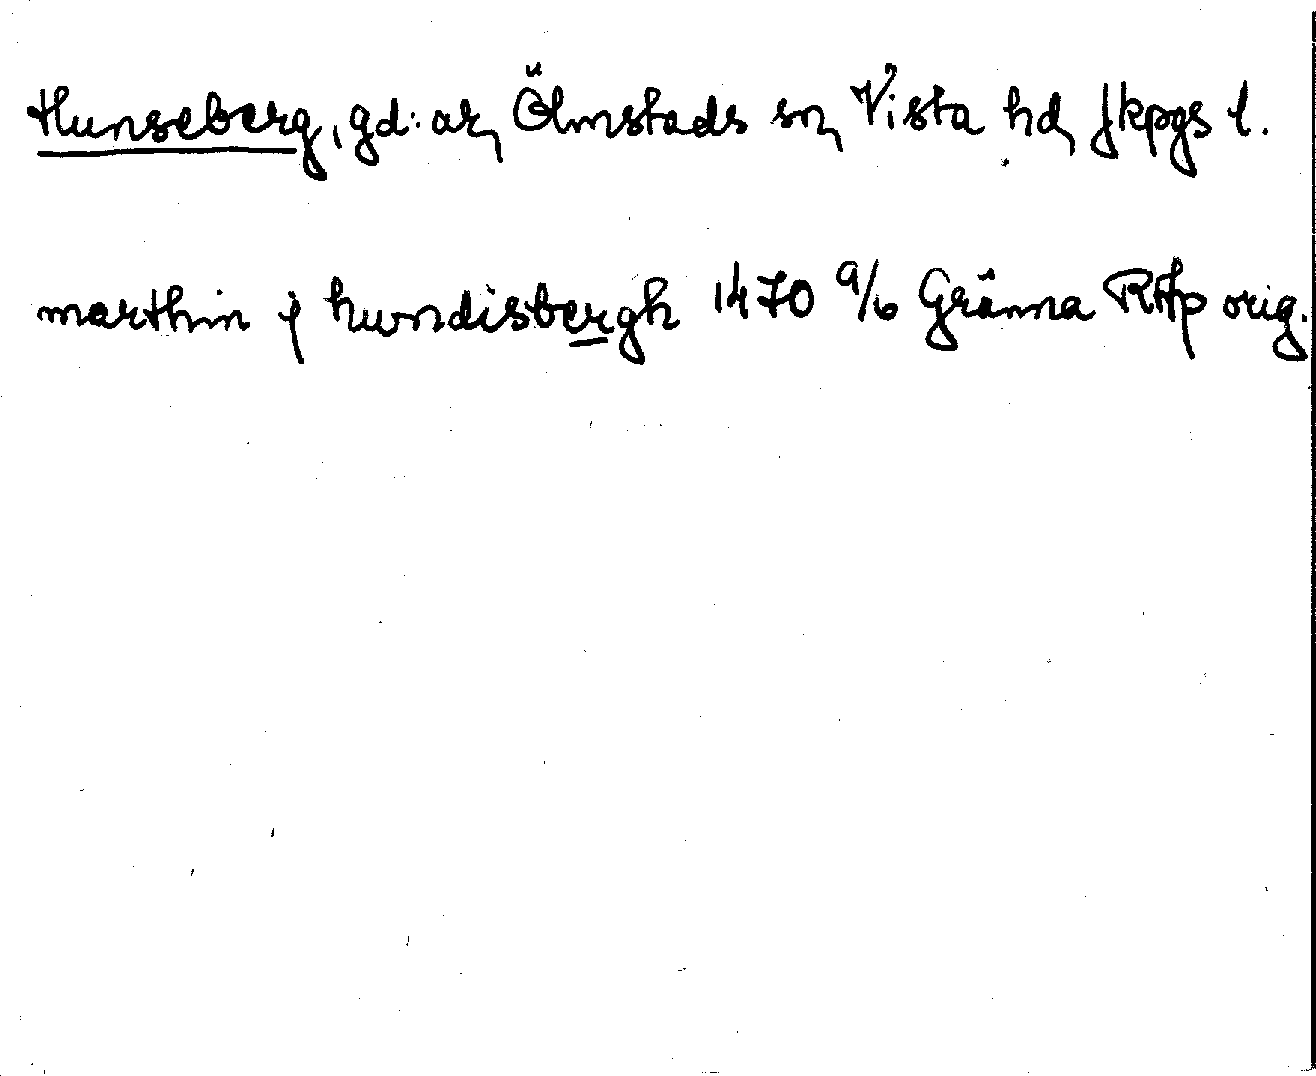 Hunseberg, gd:ar, Ölmstads sn, Vista hd, Jkpgs l.
marthin j hundisbergh 1470 9/6 Gränna RAp orig.